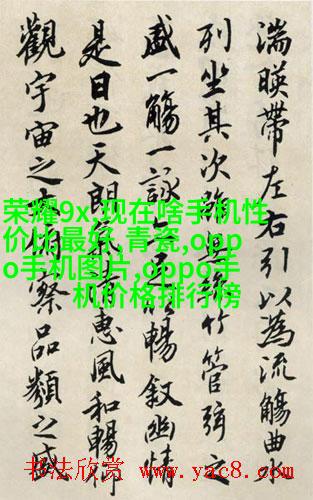 湍暎帶左右引以為流觴曲
列坐其次雖無絲竹管弦之
盛一觴一詠亦足以暢敘幽情
是日也天朗氣清惠風和暢仰
觀宇宙之大俯察品類之盛
荣耀9x,现在啥手机性
价比最好,青瓷,opp
o手机图片,oppo手
机价格排行榜
书法欣赏 www.yac8.com